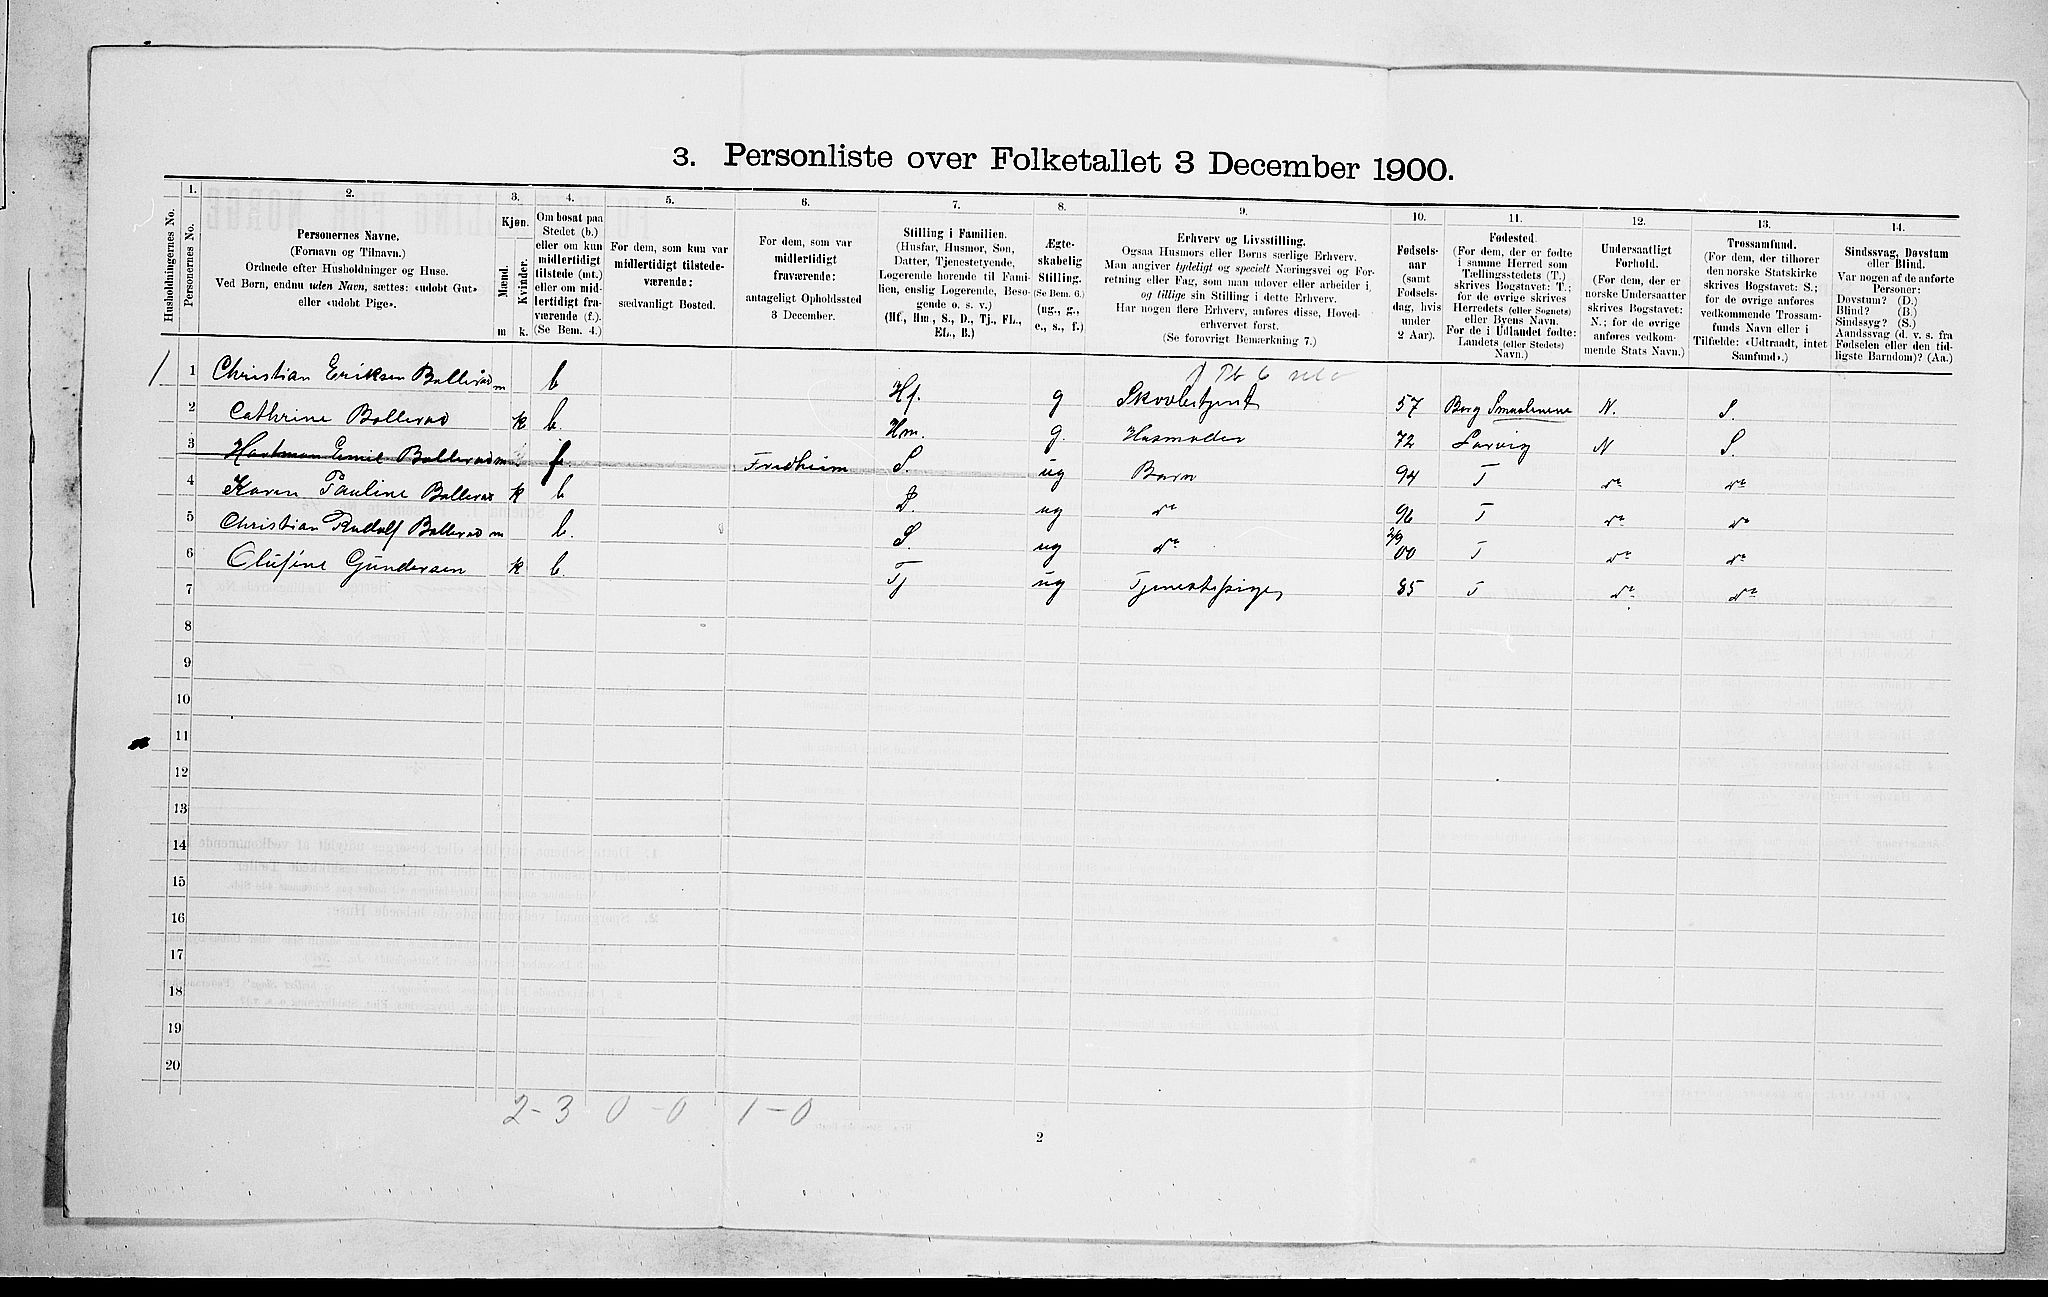 3. Personliste over Folketallet 3 December 1900.
Husholdningernes No.
1. Personernes No.
2. Personernes Navne.
(Fornavn og Tilnavn.)
Ordnede efter Husholdninger og Huse.
Ved Børn, endnu uden Navn, sættes: «udøbt Gut»
eller «udøbt Pige».
3. Kjøn.
Mænd. Kvinder.
m k.
4. Om bosat paa
Stedet (b.)
eller om kun
midlertidigt
tilstede (mt.)
eller om mid-
lertidigt fra-
værende (f.).
(Se Bem. 4.)
5. For dem, som kun var
midlertidigt tilstede-
værende:
sædvanligt Bosted.
6. For dem, som var
midlertidigt
fraværende:
antageligt Opholdssted
3 December.
7. Stilling i Familien.
(Husfar, Husmor, Søn,
Datter, Tjenestetyende,
Logerende hørende til Fami-
lien, enslig Logerende, Besø-
gende o. s. v.)
(Hf., Hm., S., D., Tj., FL.,
EL., B.)
8. Ægte-
skabelig
Stilling.
(Se Bem. 6.)
(ug., g.,
e., s., f.)
9. Erhverv og Livsstilling.
Ogsaa Husmors eller Børns særlige Erhverv.
Man angiver tydeligt og specielt Næringsvei og For-
retning eller Fag, som man udøver eller arbeider i,
og tillige sin Stilling i dette Erhverv.
Har nogen flere Erhverv, anføres disse, Hoved-
erhvervet først.
(Se forøvrigt Bemærkning 7.)
10. Fødsels-
aar
(samt
Fødsels-
dag, hvis
under
2 Aar).
11. Fødested.
(For dem, der er fødte
i samme Herred som
Tællingsstedets (T.)
skrives Bogstavet: T.;
for de øvrige skrives
Herredets (eller Sognets)
eller Byens Navn.
For de i Udlandet fødte:
Landets (eller Stedets)
Navn.)
12. Undersaatligt
Forhold.
(For dem, der er
norske Undersaatter
skrives Bogstavet:
N.; for de øvrige
anføres vedkom-
mende Stats Navn.)
13. Trossamfund.
(For dem, der tilhører
den norske Statskirke
skrives Bogstavet: S.;
for de øvrige anføres
vedkommende Trossam-
funds Navn eller i
Tilfælde: «Udtraadt, intet
Samfund».)
14. Sindssvag, Døvstum
eller Blind.
Var nogen af de anførte
Personer:
Døvstum? (D.)
Blind? (B.)
Sindssyg? (S.)
Aandssvag (d. v. s. fra
Fødselen eller den tid-
ligste Barndom)? (Aa.)
1 1 Christian Eriksen Bollerød m b Hf. g Skovbetjent 57 Borg Smaalenene N. S.
2 Cathrine Bollerød k b. Hm. g. Husmoder 72 Larvig N S.
3 Hartman Emil Bollerød m f. Fredheim S. ug Barn 94 T do do
4 Karen Pauline Bollerød k b D. ug do 96 T do do
5 Christian Rudolf Bollerød m b. S. ug do 2/9 00 T do do
6 Olufine Gundersen k b. Tj ug Tjenestepige 85 T do do
7
8
9
10
11
12
13
14
15
16
17
18
19
20
2-3 0-0 1-0
2